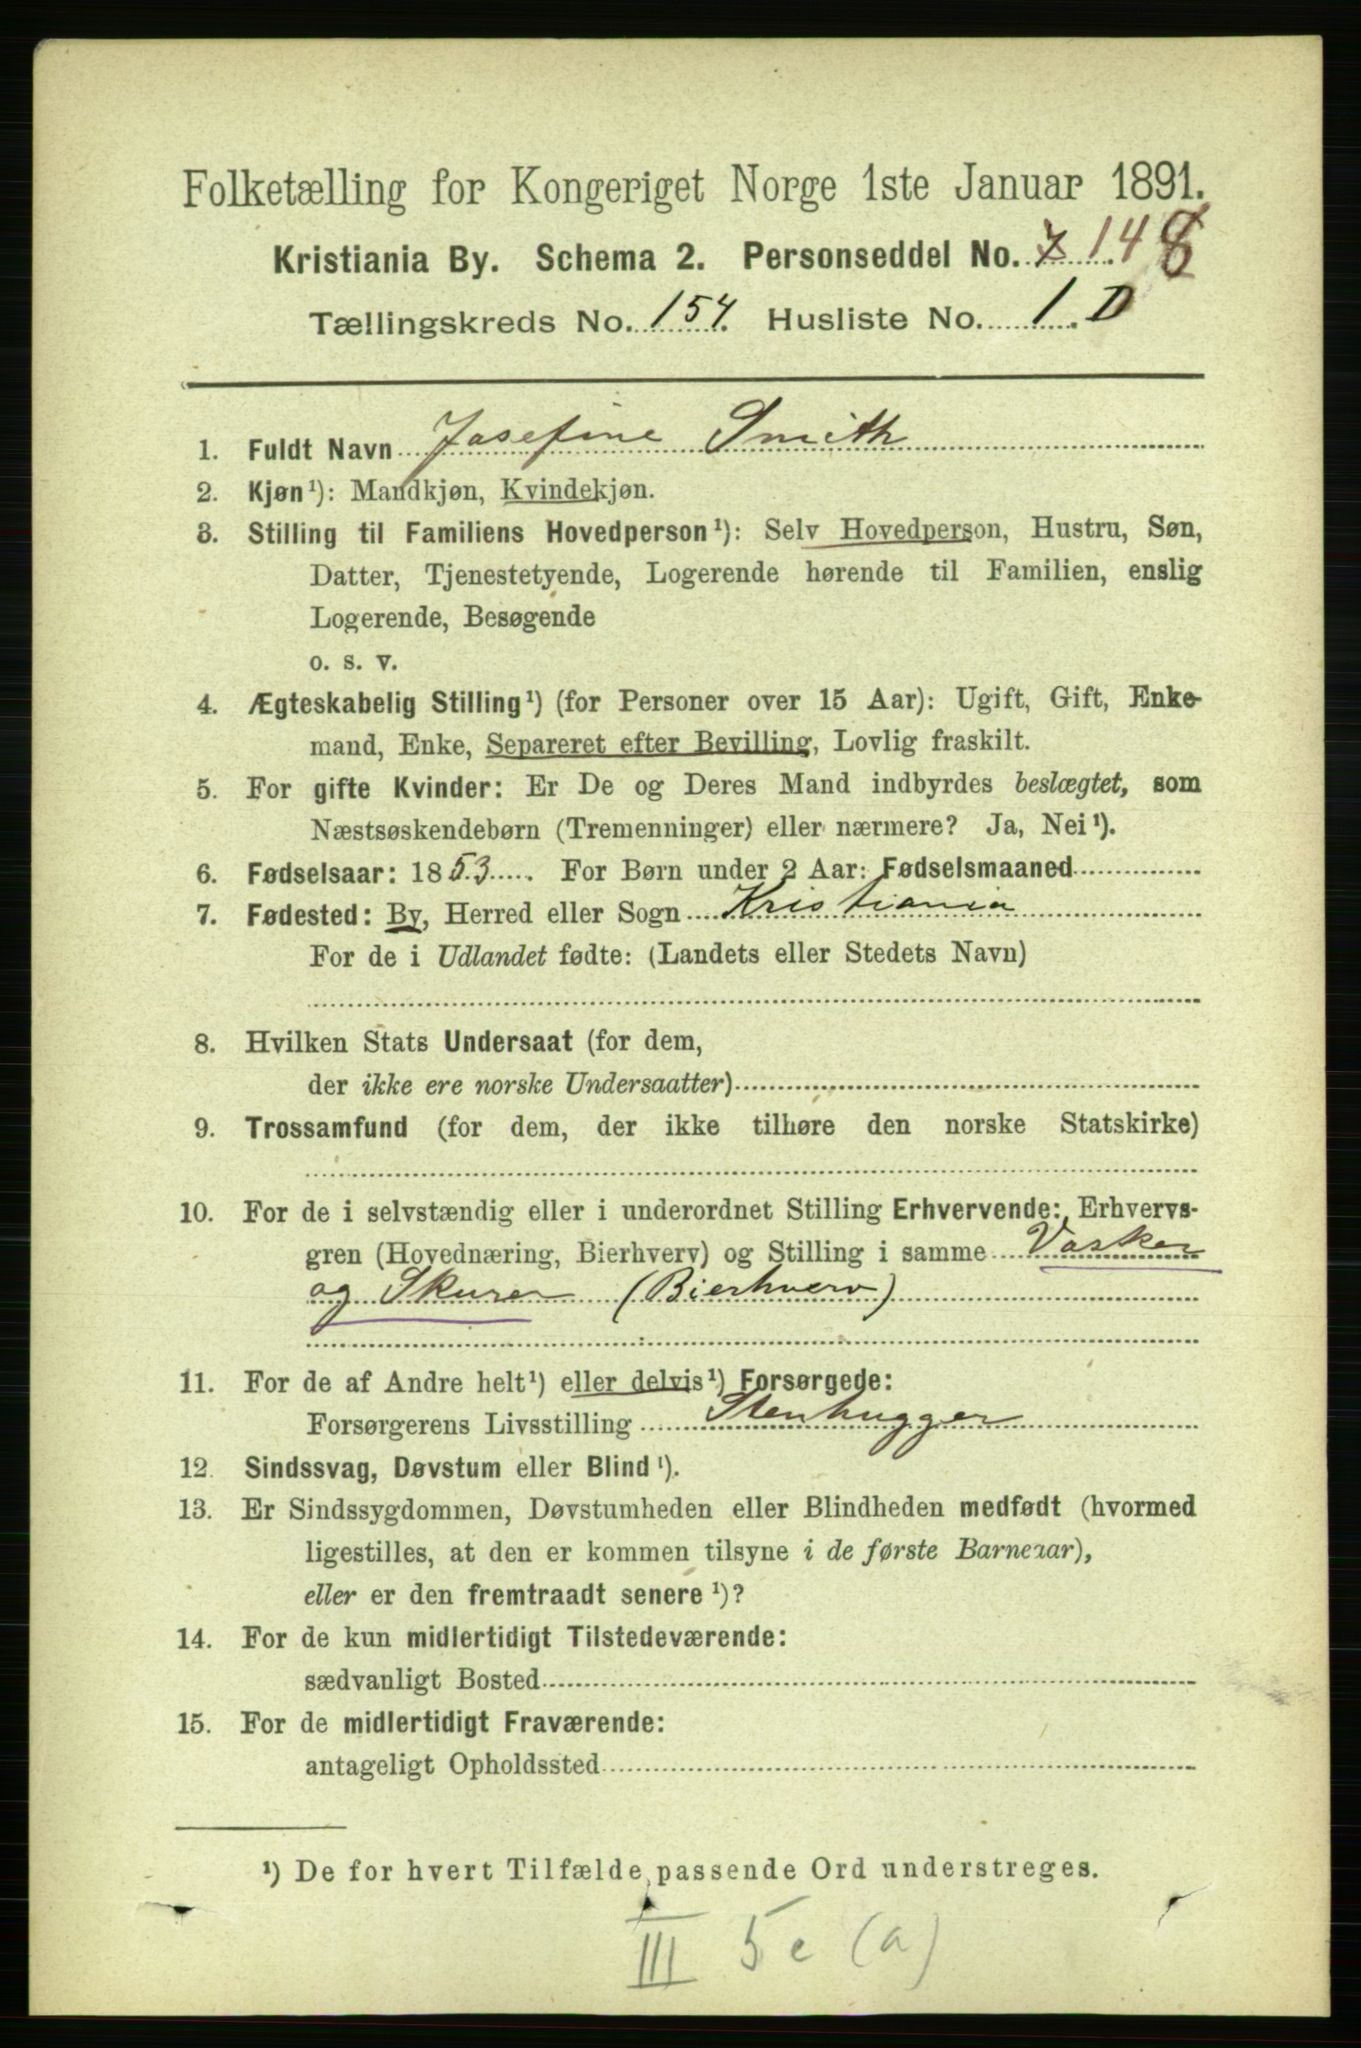 Folketælling for Kongeriget Norge 1ste Januar 1891.
Kristiania By. Schema 2. Personseddel No. 7 148
Tællingskreds No. 154. Husliste No. 1.D
1. Fuldt Navn Josefine Smith
2. Kjøn¹): Mandkjøn, Kvindekjøn.
3. Stilling til Familiens Hovedperson¹): Selv Hovedperson, Hustru, Søn,
Datter, Tjenestetyende, Logerende hørende til Familien, enslig
Logerende, Besøgende
o. s. v.
4. Ægteskabelig Stilling¹) (for Personer over 15 Aar): Ugift, Gift, Enke-
mand, Enke, Separeret efter Bevilling, Lovlig fraskilt.
5. For gifte Kvinder: Er De og Deres Mand indbyrdes beslægtet, som
Næstsøskendebørn (Tremenninger) eller nærmere? Ja, Nei¹).
6. Fødselsaar: 1853. For Børn under 2 Aar: Fødselsmaaned
7. Fødested: By, Herred eller Sogn Kristiania
For de i Udlandet fødte: (Landets eller Stedets Navn)
8. Hvilken Stats Undersaat (for dem,
der ikke ere norske Undersaatter)
9. Trossamfund (for dem, der ikke tilhøre den norske Statskirke)
10. For de i selvstændig eller i underordnet Stilling Erhvervende: Erhvervs-
gren (Hovednæring, Bierhverv) og Stilling i samme Vasker
og Skurer (Bierhverv)
11. For de af Andre helt¹) eller delvis¹) Forsørgede:
Forsørgerens Livsstilling Stenhugger
12. Sindssvag, Døvstum eller Blind¹).
13. Er Sindssygdommen, Døvstumheden eller Blindheden medfødt (hvormed
ligestilles, at den er kommen tilsyne i de første Barneaar),
eller er den fremtraadt senere¹)?
14. For de kun midlertidigt Tilstedeværende:
sædvanligt Bosted
15. For de midlertidigt Fraværende:
antageligt Opholdssted
¹) De for hvert Tilfælde passende Ord understreges.
III 5 c (a)